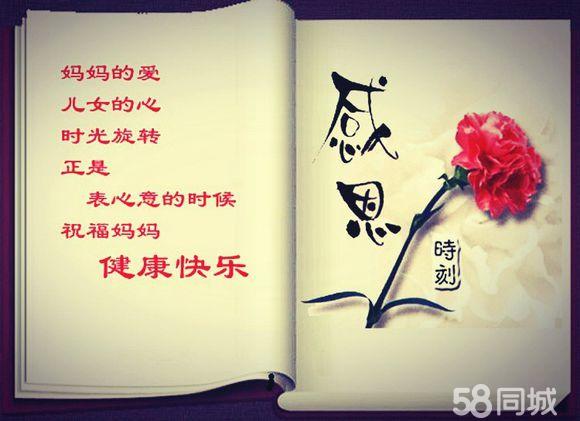 妈妈的爱
儿女的心
时光旋转
正是
表心意的时候
祝福妈妈
健康快乐
感恩
時刻
58同城